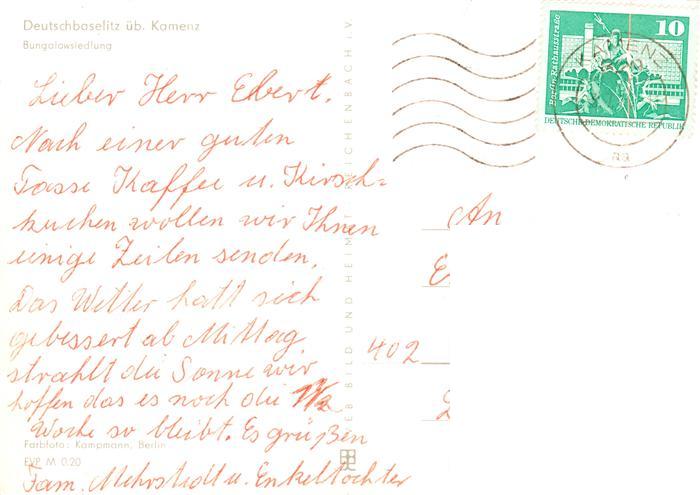 Deutschbaselitz üb. Kamenz
Bungalowsiedlung
Lieber Herr Ebert.
Nach einer guten
Tasse Kaffee u. Kirsch=
kuchen wollen wir Ihnen
einige Zeilen senden,
Das Wetter hatt sich
gebessert ab Mittag
strahlt die Sonne wir
hoffen das es noch die 1/2
Woche so bleibt. Es grüßen
Fam. Mehrstedt u. Enkeltochter
Farbfoto: Kampmann, Berlin
EVP M 0.20
BILD UND HEIMAT REICHENBACH i.V.
10
Berlin-Rathausstraße
DEUTSCHE DEMOKRATISCHE REPUBLIK
KAMENZ
An
E
402